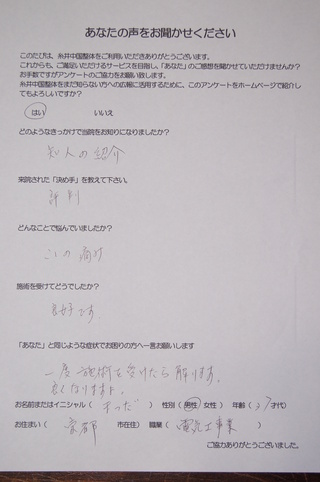 あなたの声をお聞かせください
このたびは、糸井中国整体をご利用いただきありがとうございます。
これからも、ご満足いただけるサービスを目指し、「あなた」のご感想を聞かせていただけませんか？
お手数ですがアンケートのご協力をお願い致します。
糸井中国整体をまだ知らない方への広報に活用するために、このアンケートをホームページで紹介し
てもよろしいですか？
はい いいえ
どのようなきっかけで当院をお知りになりましたか？
知人の紹介
来院された「決め手」を教えて下さい。
評判
どんなことで悩んでいましたか？
こしの痛み
施術を受けてどうでしたか？
良好です。
「あなた」と同じような症状でお困りの方へ一言お願いします
一度施術を受けたら解ります。
良くなりますよ。
お名前またはイニシャル（ まつだ ） 性別（男性・女性） 年齢（ 37才代）
お住まい（ 京都 市在住） 職業（ 電気工事業 ）
ご協力ありがとうございました。